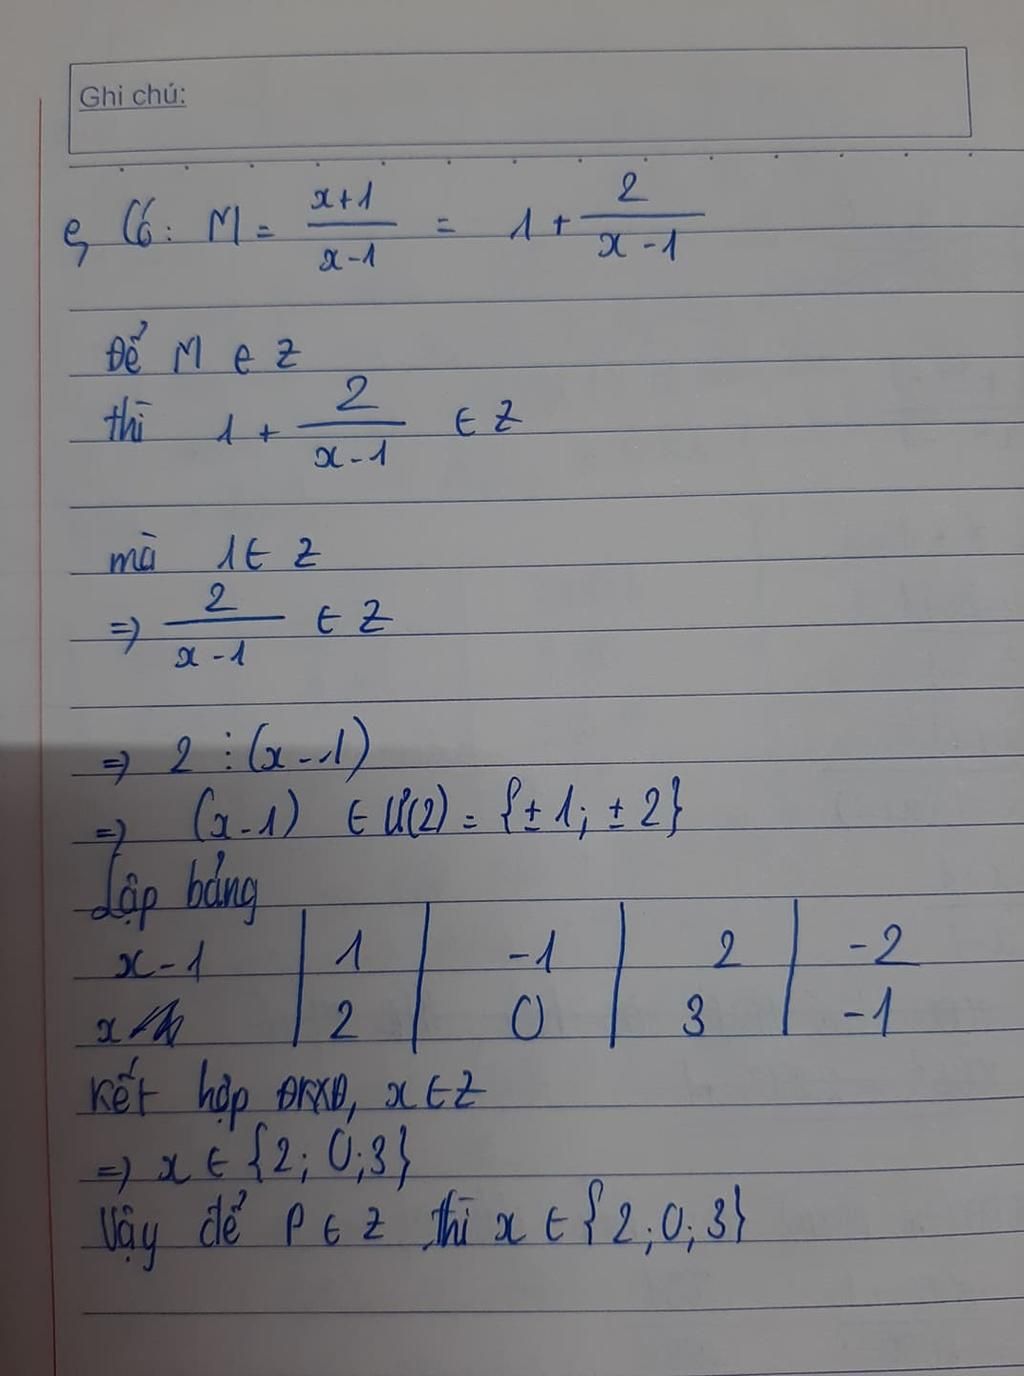 Ghi chú:
e, Có: M = x+1 / x-1 = 1 + 2 / x-1
Để M ∈ Z
thì 1 + 2 / x-1 ∈ Z
mà 1 ∈ Z
=> 2 / x-1 ∈ Z
=> 2 ⋮ (x-1)
=> (x-1) ∈ Ư(2) = {±1; ±2}
Lập bảng
x-1 | 1 | -1 | 2 | -2
x | 2 | 0 | 3 | -1
Kết hợp ĐKXĐ, x ∈ Z
=> x ∈ {2; 0; 3}
Vậy để P ∈ Z thì x ∈ {2; 0; 3}